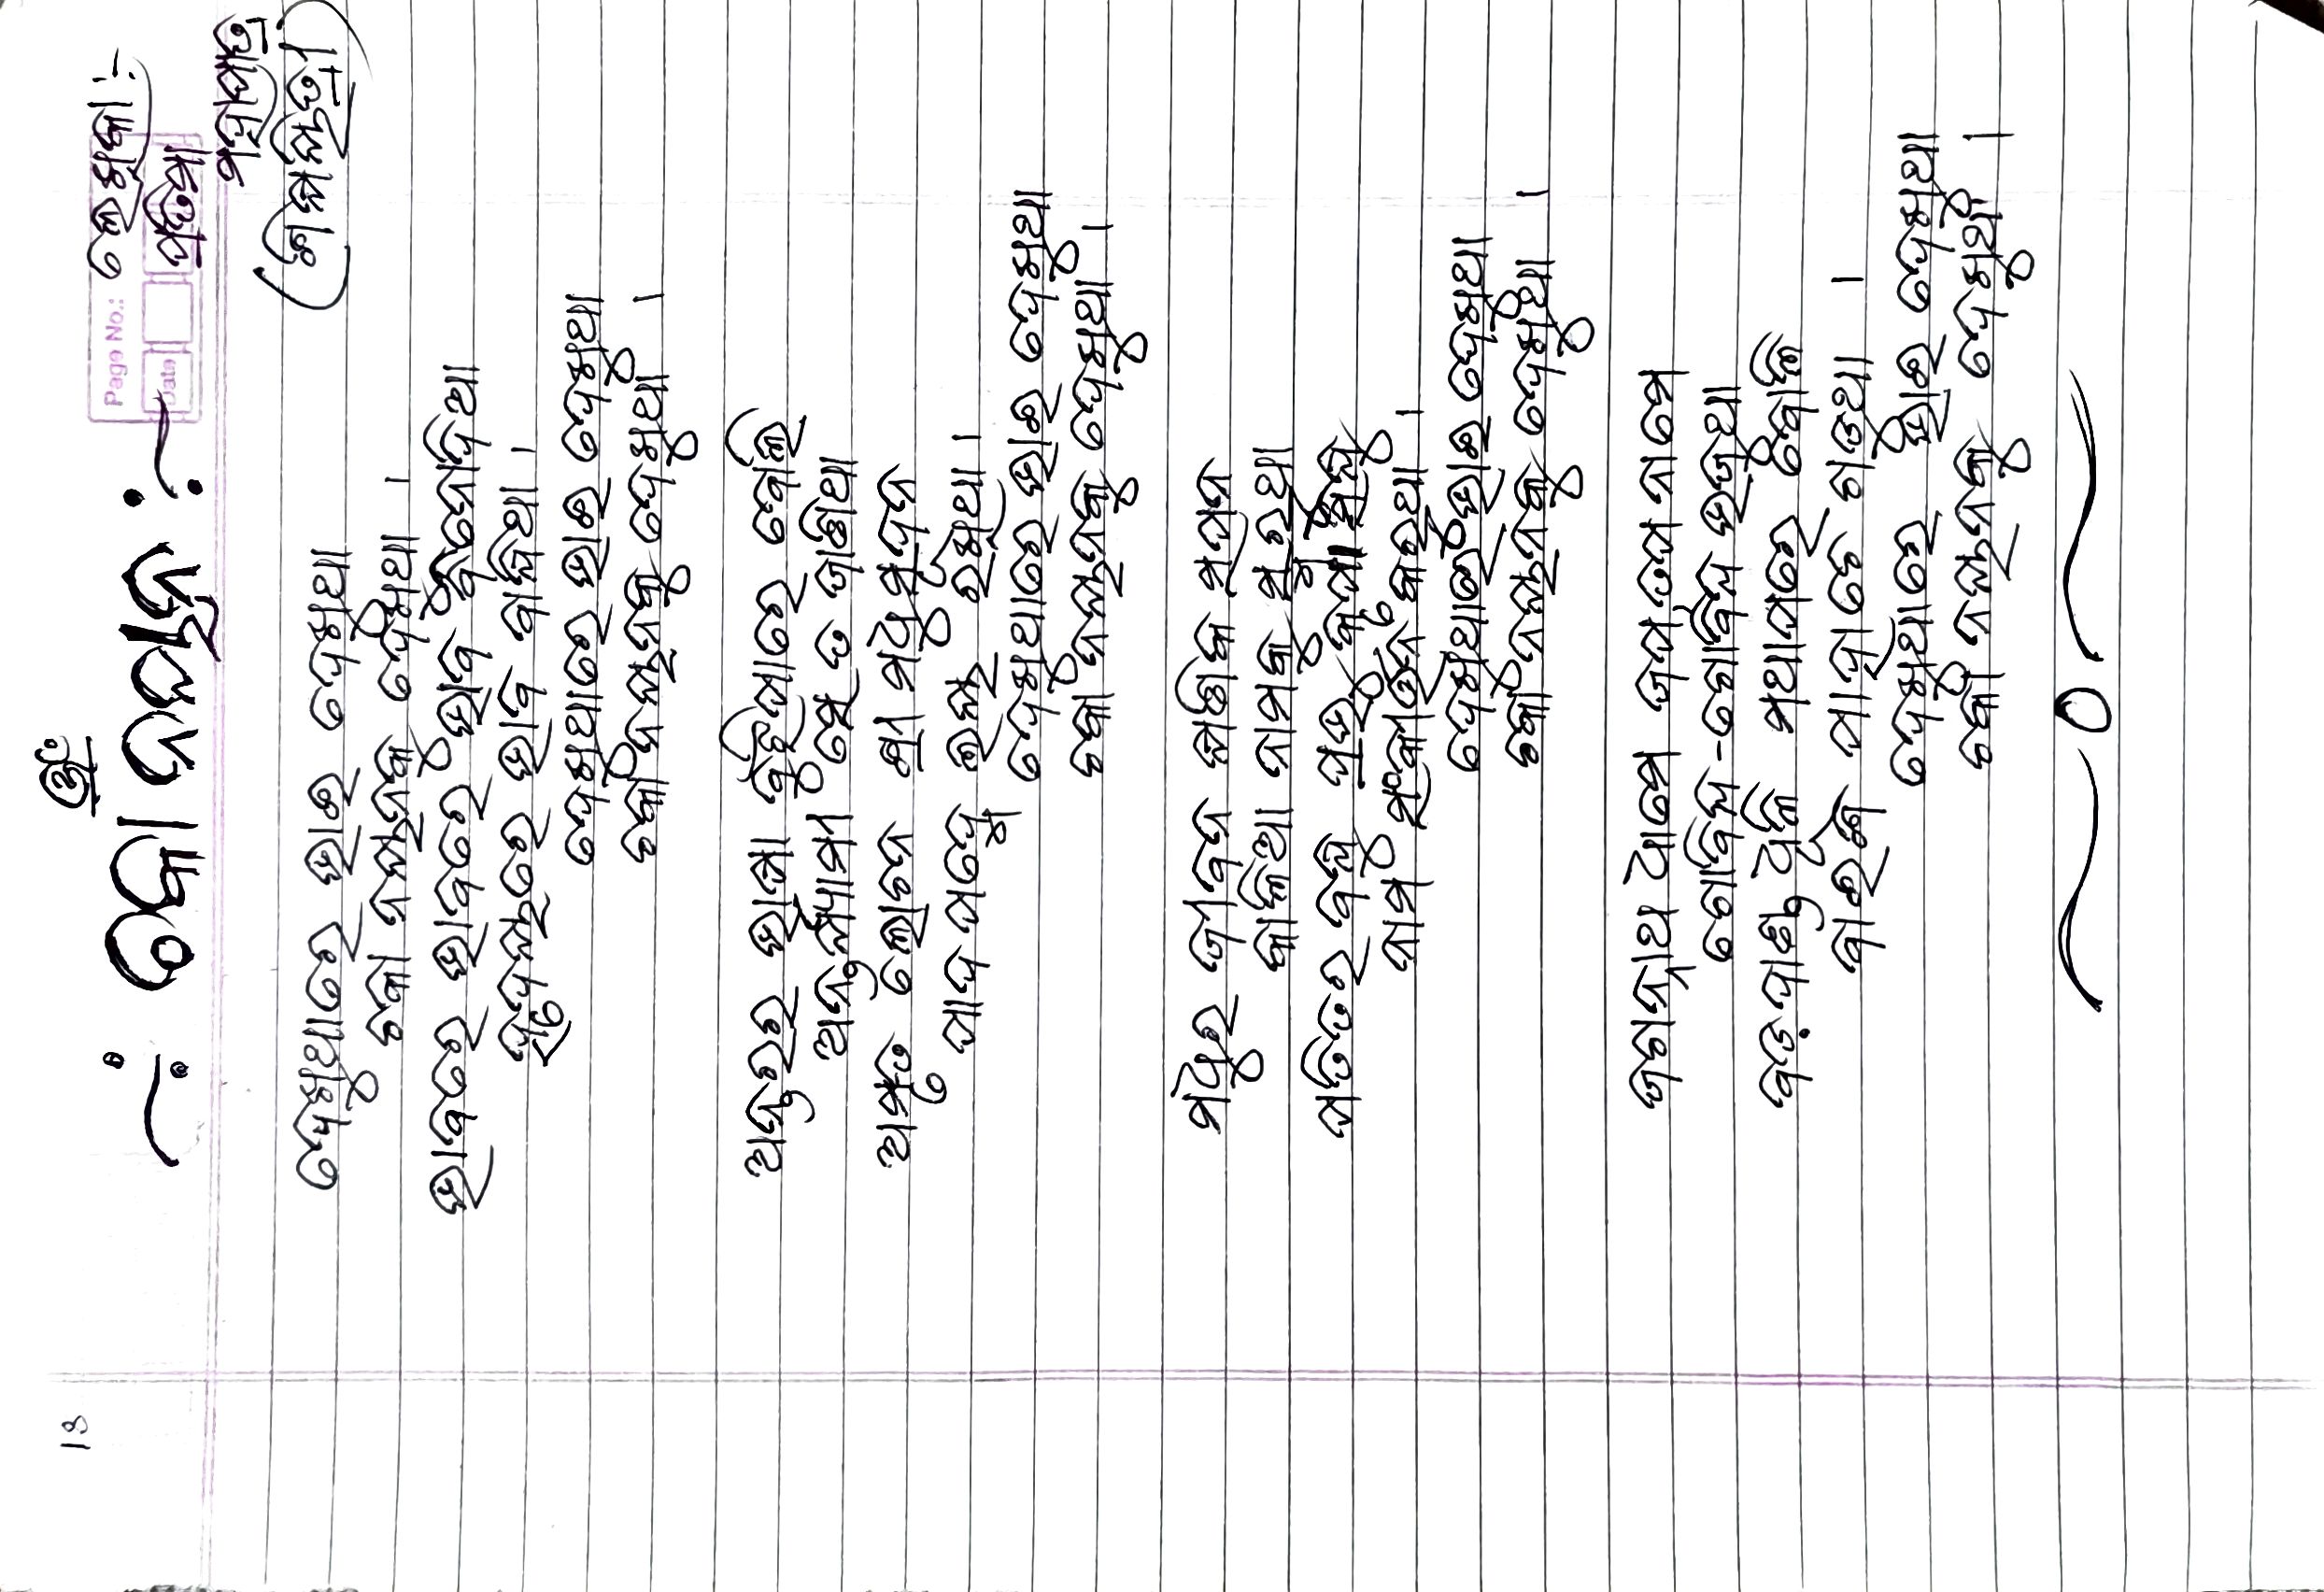 13
ଓଁ
-: ଚକା ନୟନ :-
Page No.:
Date
ଲେଖିକା :-
ପ୍ରତିମା
ମହାପାତ୍ର
(ଶିକ୍ଷୟିତ୍ରୀ)
ଦେଖୁଥାରେ ଭାଇ ଦେଖୁଥା
ଚକା ନୟନକୁ ଦେଖୁଥା ।
ଭାବରେ ଭାବରେ ଭାବ ବିନୋଦିଆ
ହୃଦୟରେ ଭାବ ବାନ୍ଧିଥା ।
ଦେଖୁଥାରେ ଭାଇ ଦେଖୁଥା
ଚକା ନୟନକୁ ଦେଖୁଥା ।
ଅନ୍ତରର ଭାଷା ବୁଝିପାରେ ବୋଲି
ଅନ୍ତର୍ଯ୍ୟାମୀ ସେ ତ ଜାଣିଥା
ଅମୃତ ଲୋଚନ ଶ୍ରୀ ମଧୁସୂଦନ
ପାଦ ପଦ୍ମେ ଲୟ ରଖିଥା ।
ଦେଖୁଥାରେ ଭାଇ ଦେଖୁଥା
ଚକା ନୟନକୁ ଦେଖୁଥା ।
ମଧୁର ଜୀବନ କ୍ଷଣିକ ସ୍ୱପନ
କାଳିଆ ନାମକୁ ସ୍ମରୁଥା
ପତିତର ବନ୍ଧୁ ପ୍ରଭୁ କୃପା ସିନ୍ଧୁ
ନାମ ସଂକୀର୍ତ୍ତନ କରୁଥା ।
ଦେଖୁଥାରେ ଭାଇ ଦେଖୁଥା
ଚକା ନୟନକୁ ଦେଖୁଥା ।
ଜଗନ୍ନାଥ ଧାମେ ଜପ,ତପ ନାମେ
ଗୋବିନ୍ଦ -ଗୋବିନ୍ଦ ଭଜୁଥା
ବଡ଼ଦାଣ୍ଡ ଧୂଳି ମଥାପରେ ବୋଳି
ବାଇଶି ପାହାଚେ ଗଡୁଥା ।
ଦେଖୁଥାରେ ଭାଇ ଦେଖୁଥା
ଚକା ନୟନକୁ ଦେଖୁଥା ।